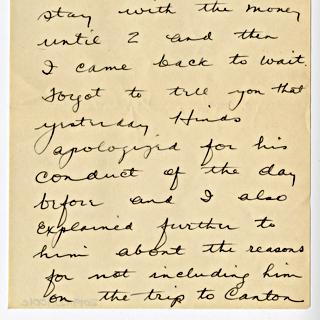 stay with the money
until 2 and then
I came back to wait.
Forgot to tell you that
yesterday Hinds
apologized for his
conduct of the day
before and I also
explained further to
him about the reasons
for not including him
on the trip to Canton